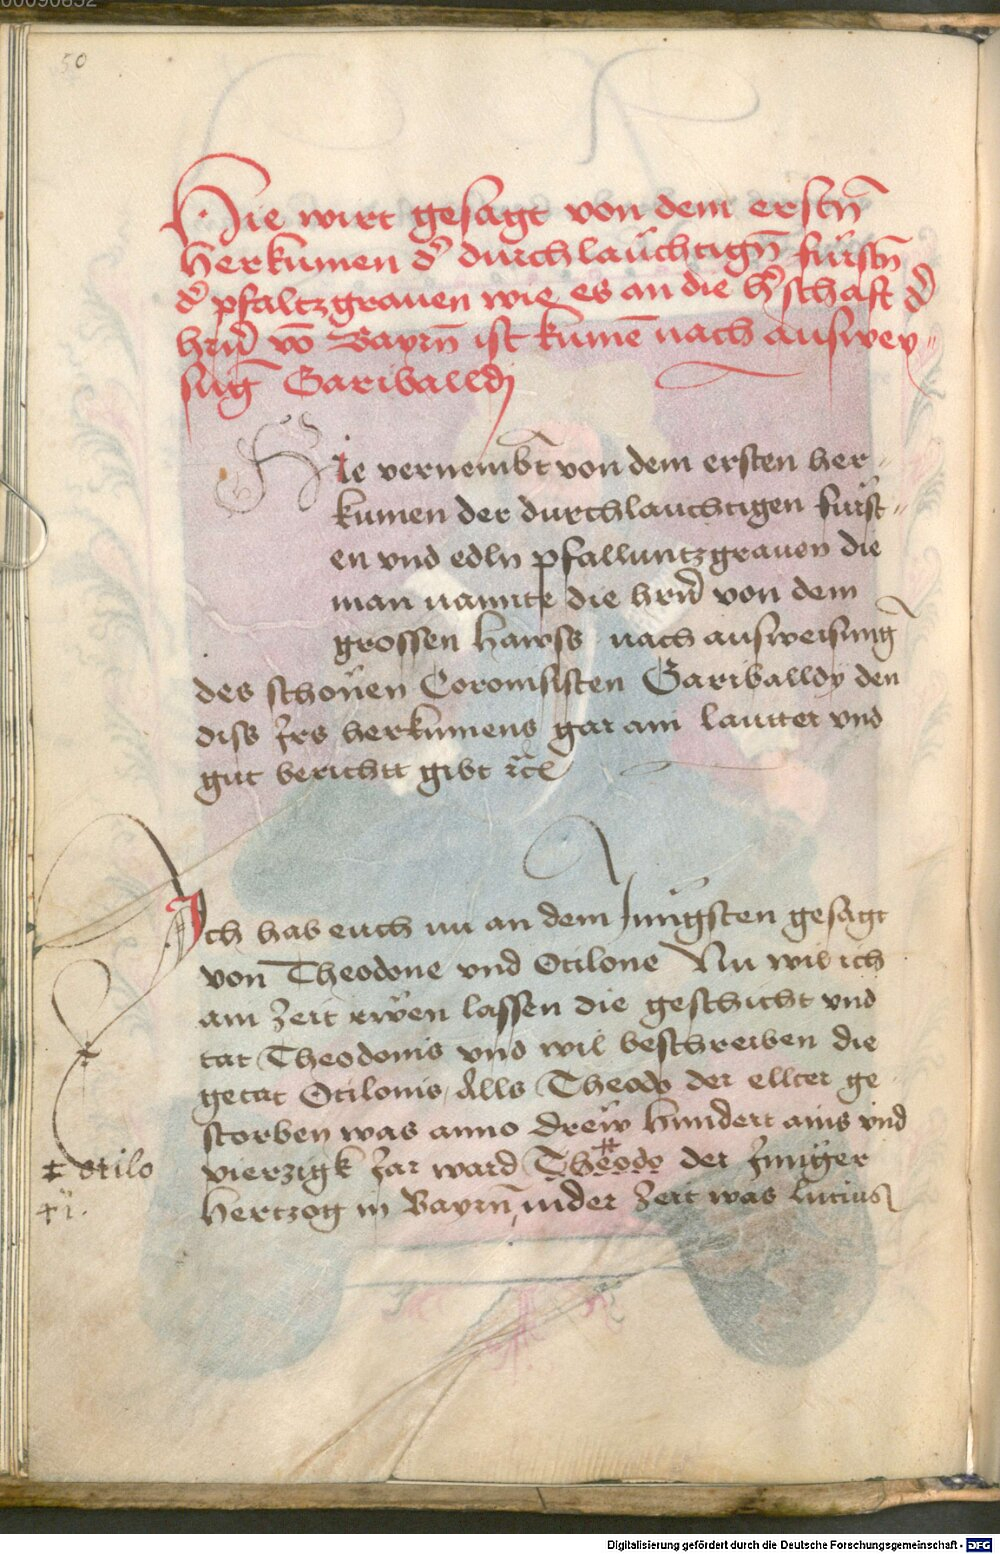 50
Hie wirt gesagt von dem erstn̄
herkumen d' durchlaüchtign̄ fürstn̄
d' pfaltzgrauen wie es an die h'schaft d'
hrn̄ vō Bayrn̄ ist kumē nach auswey„
suḡ Gariballdj
Hie vernembt von dem ersten her„
kumen der durchlauchtigen fürst„
en vnd edln pfalluntzgrauen die
man nannte die hrn̄ von dem
grossen hawss nach ausweisung
des schonen Coronisisten Gariballdy den
diss Irs herkumens gar ain lautter vnd
gut berichtt gibt etc
Ich hab euch nu an dem Jungsten gesagt
von Theodone vnd Otilone Nu wil ich
ain zeit rwen lassen die geschicht vnd
tat Theodonis vnd wil beschreiben die
getat Otilonis Alls Theodo der ellter ge„
storben was anno drew hundert ains vnd
vierzigk Jar ward Theodo der Junger
hertzog in Bayrn̄ in der zeit was lucius
‡ otilo
Digitalisierung gefördert durch die Deutsche Forschungsgemeinschaft - DFG